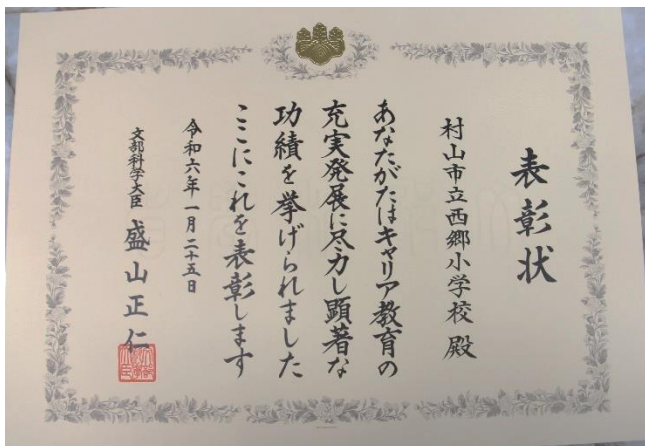 表彰状
村山市立西郷小学校 殿
あなたがたはキャリア教育の
充実発展に尽力し顕著な
功績を挙げられました
ここにこれを表彰します
令和六年一月二十五日
文部科学大臣 盛山正仁